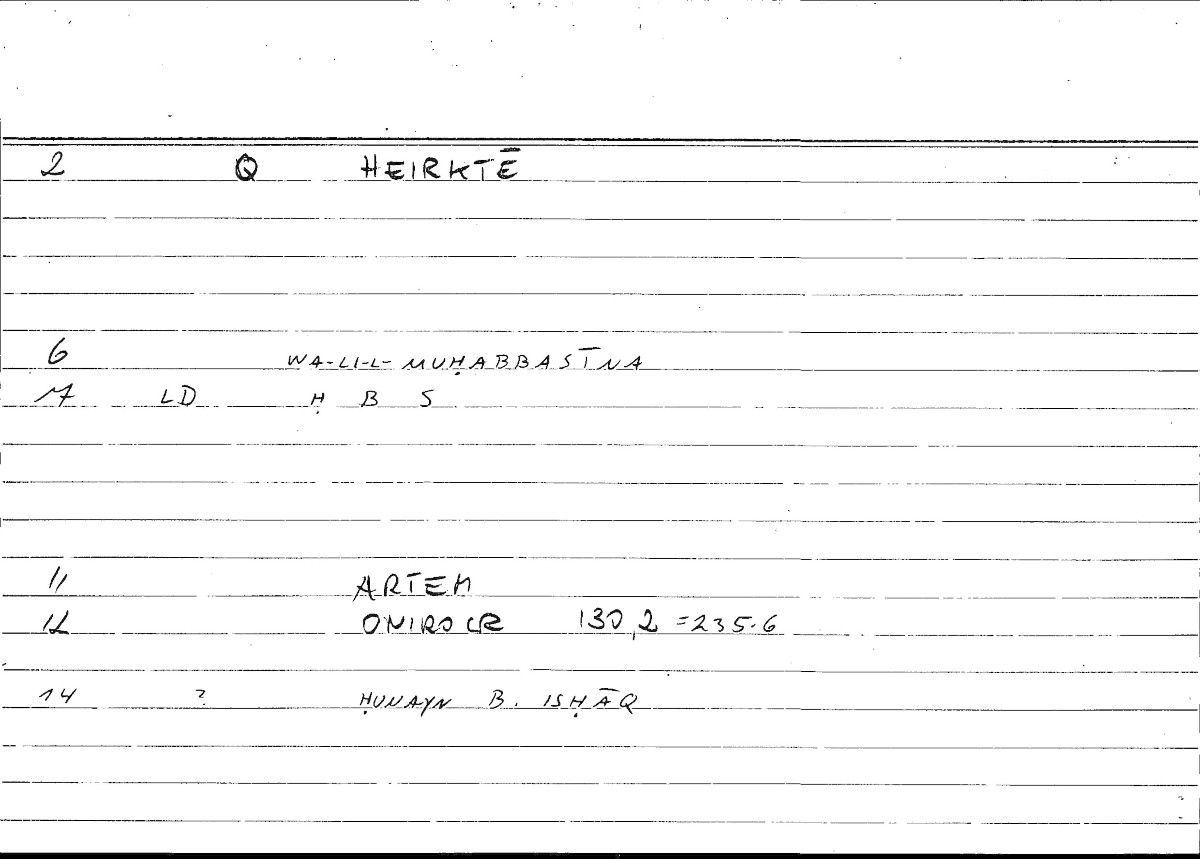 2 Q HEIRKTĒ
6 WA-LI-L-MUḤABBASĪNA
17 LD Ḥ B S
11 ARTEM
12 ONIROCR 130,2 =235.6
14 ? ḤUNAYN B. ISḤĀQ